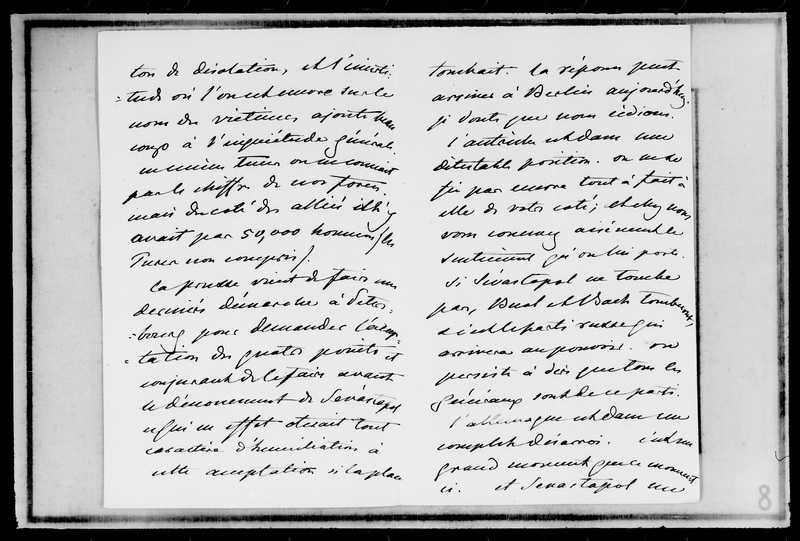 ton de désolation, et l'incerti-
tude où l'on est encore sur le
nom des victimes ajoute beau
coup à l'inquiétude générale.
même on ne connait
pas le chiffre de nos forces
mais du coté des alliés il n'y
avait pas 50,000 hommes (les
Turcs non compris).
La prusse vient de faire une
dernière démarche à Peters-
-bourg pour demander l'accep-
-tation des quatre points et
conjurant de le faire avant
le dénouement de Sévastopol
ce qui en effet oterait tout
caractère d'humiliation à
cette acceptation si la place
tombait. La réponse peut
arriver à Berlin aujourd'hui.
je doute que nous cédions.
l'autriche est dans une
détestable position. on ne se
fie pas encore tout à fait à
elle de votre coté; et chez nous
vous concevez aisément le
sentiment qu'on lui porte.
Si Sévastopol ne tombe
pas, Buol et Bach tomberont,
et c'est le parti russe qui
arrivera au pouvoir. on
persiste à dire que tous les
généraux sont de ce parti.
l'allemagne est dans un
complet désarroi. c'est un
grand moment que ce moment
ci. et Sevastopol une
8